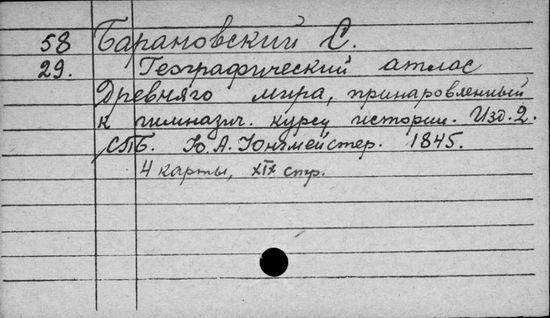 58 Барановский С.
29. Географический атлас
Древняго мира, принаровленный
к гимназич. курсу истории. Изд. 2.
СПБ. Ю. А. Юнгмейстер. 1845.
4 карты, XIX стр.